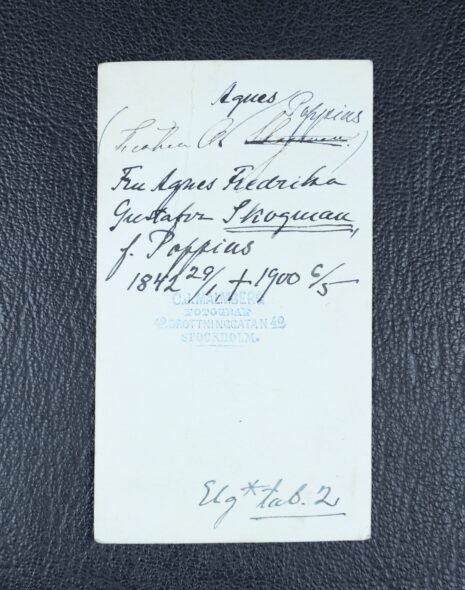 Agnes Poppius
(
Fru Agnes Fredrika
Gustafva Skogman,
f. Poppius
1842 29/1 + 1900 6/5
C.J. MALMBERG
FOTOGRAF
42 DROTTNINGGATAN 42
STOCKHOLM.
Elg* tab. 2